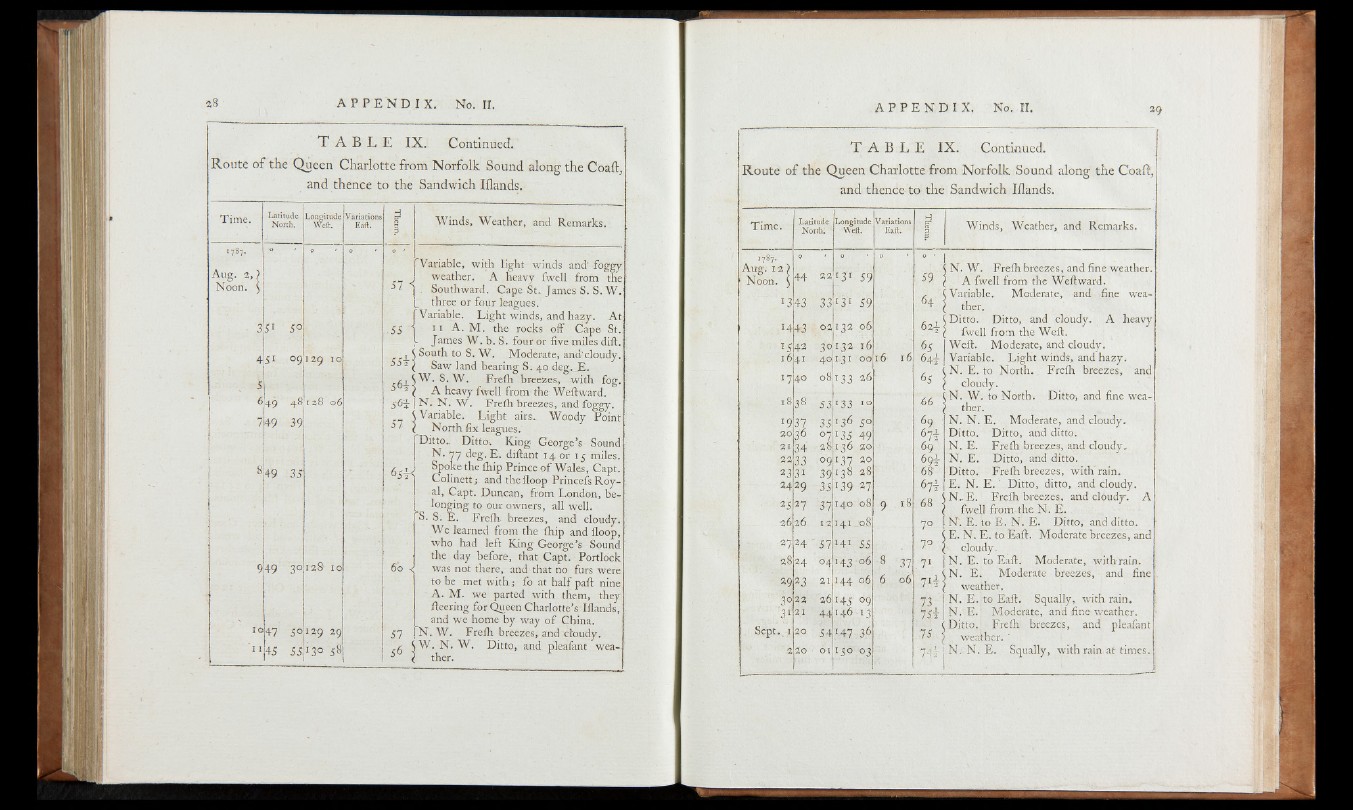 28 APPENDIX. No. II.
TABLE IX. Continued.
Route of the Queen Charlotte from Norfolk Sound along the Coaſt,
and thence to the Sandwich Iſlands.
Time. Latitude North. Longitude Weſt. Variations Eaſt. Therm. Winds, Weather, and Remarks.
1787. ° ′ ° ′ ° ′ ° ′
Aug. 2, Noon. 57 Variable, with light winds and foggy
weather. A heavy ſwell from the
Southward. Cape St. James S. S. W.
three or four leagues.
3 51 50 55 Variable. Light winds, and hazy. At
11 A. M. the rocks off Cape St.
James W. b. S. four or five miles diſt.
4 51 09 129 10 55½ South to S. W. Moderate, and cloudy.
Saw land bearing S. 40 deg. E.
5 56½ W. S. W. Freſh breezes, with fog.
A heavy ſwell from the Weſtward.
6 49 48 128 06 56½ N. N. W. Freſh breezes, and foggy.
7 49 39 57 Variable. Light airs. Woody Point
North ſix leagues.
8 49 35 65½ Ditto. Ditto. King George's Sound
N. 77 deg. E. diſtant 14 or 15 miles.
Spoke the ſhip Prince of Wales, Capt.
Colinett; and the ſloop Princeſs Roy-
al, Capt. Duncan, from London, be-
longing to our owners, all well.
9 49 30 128 10 60 S. S. E. Freſh breezes, and cloudy.
We learned from the ſhip and ſloop,
who had left King George's Sound
the day before, that Capt. Portlock
was not there, and that no furs were
to be met with; ſo at half paſt nine
A. M. we parted with them, they
ſteering for Queen Charlotte's Iſlands,
and we home by way of China.
10 47 50 129 29 57 N. W. Freſh breezes, and cloudy.
11 45 55 130 58 56 W. N. W. Ditto, and pleaſant wea-
ther.
APPENDIX. No. II. 29
TABLE IX. Continued.
Route of the Queen Charlotte from Norfolk Sound along the Coaſt,
and thence to the Sandwich Iſlands.
Time. Latitude North. Longitude Weſt. Variations Eaſt. Therm. Winds, Weather, and Remarks.
1787. ° ′ ° ′ ° ′ ° ′
Aug. 12 Noon. 44 22 131 59 59 N. W. Freſh breezes, and fine weather.
A ſwell from the Weſtward.
13 43 33 131 59 64 Variable. Moderate, and fine wea-
ther.
14 43 02 132 06 62½ Ditto. Ditto, and cloudy. A heavy
ſwell from the Weſt.
15 42 30 132 16 65 Weſt. Moderate, and cloudy.
16 41 40 131 00 16 16 64½ Variable. Light winds, and hazy.
17 40 08 133 26 65 N. E. to North. Freſh breezes, and
cloudy.
18 38 53 133 10 66 N. W. to North. Ditto, and fine wea-
ther.
19 37 35 136 50 69 N. N. E. Moderate, and cloudy.
20 36 07 135 49 67½ Ditto. Ditto, and ditto.
21 34 28 136 20 69 N. E. Freſh breezes, and cloudy.
22 33 09 137 20 69½ N. E. Ditto, and ditto.
23 31 39 138 28 68 Ditto. Freſh breezes, with rain.
24 29 35 139 27 67½ E. N. E. Ditto, ditto, and cloudy.
25 27 37 140 08 9 18 68 N. E. Freſh breezes, and cloudy. A
ſwell from the N. E.
26 26 12 141 08 70 N. E. to E. N. E. Ditto, and ditto.
27 24 57 141 55 70 E. N. E. to Eaſt. Moderate breezes, and
cloudy.
28 24 04 143 06 8 37 71 N. E. to Eaſt. Moderate, with rain.
29 23 21 144 06 6 06 71½ N. E. Moderate breezes, and fine
weather.
30 22 26 145 09 73 N. E. to Eaſt. Squally, with rain.
31 21 44 146 13 75½ N. E. Moderate, and fine weather.
Sept. 1 20 54 147 36 75 Ditto. Freſh breezes, and pleaſant
weather.
2 20 01 150 03 74½ N. N. E. Squally, with rain at times.